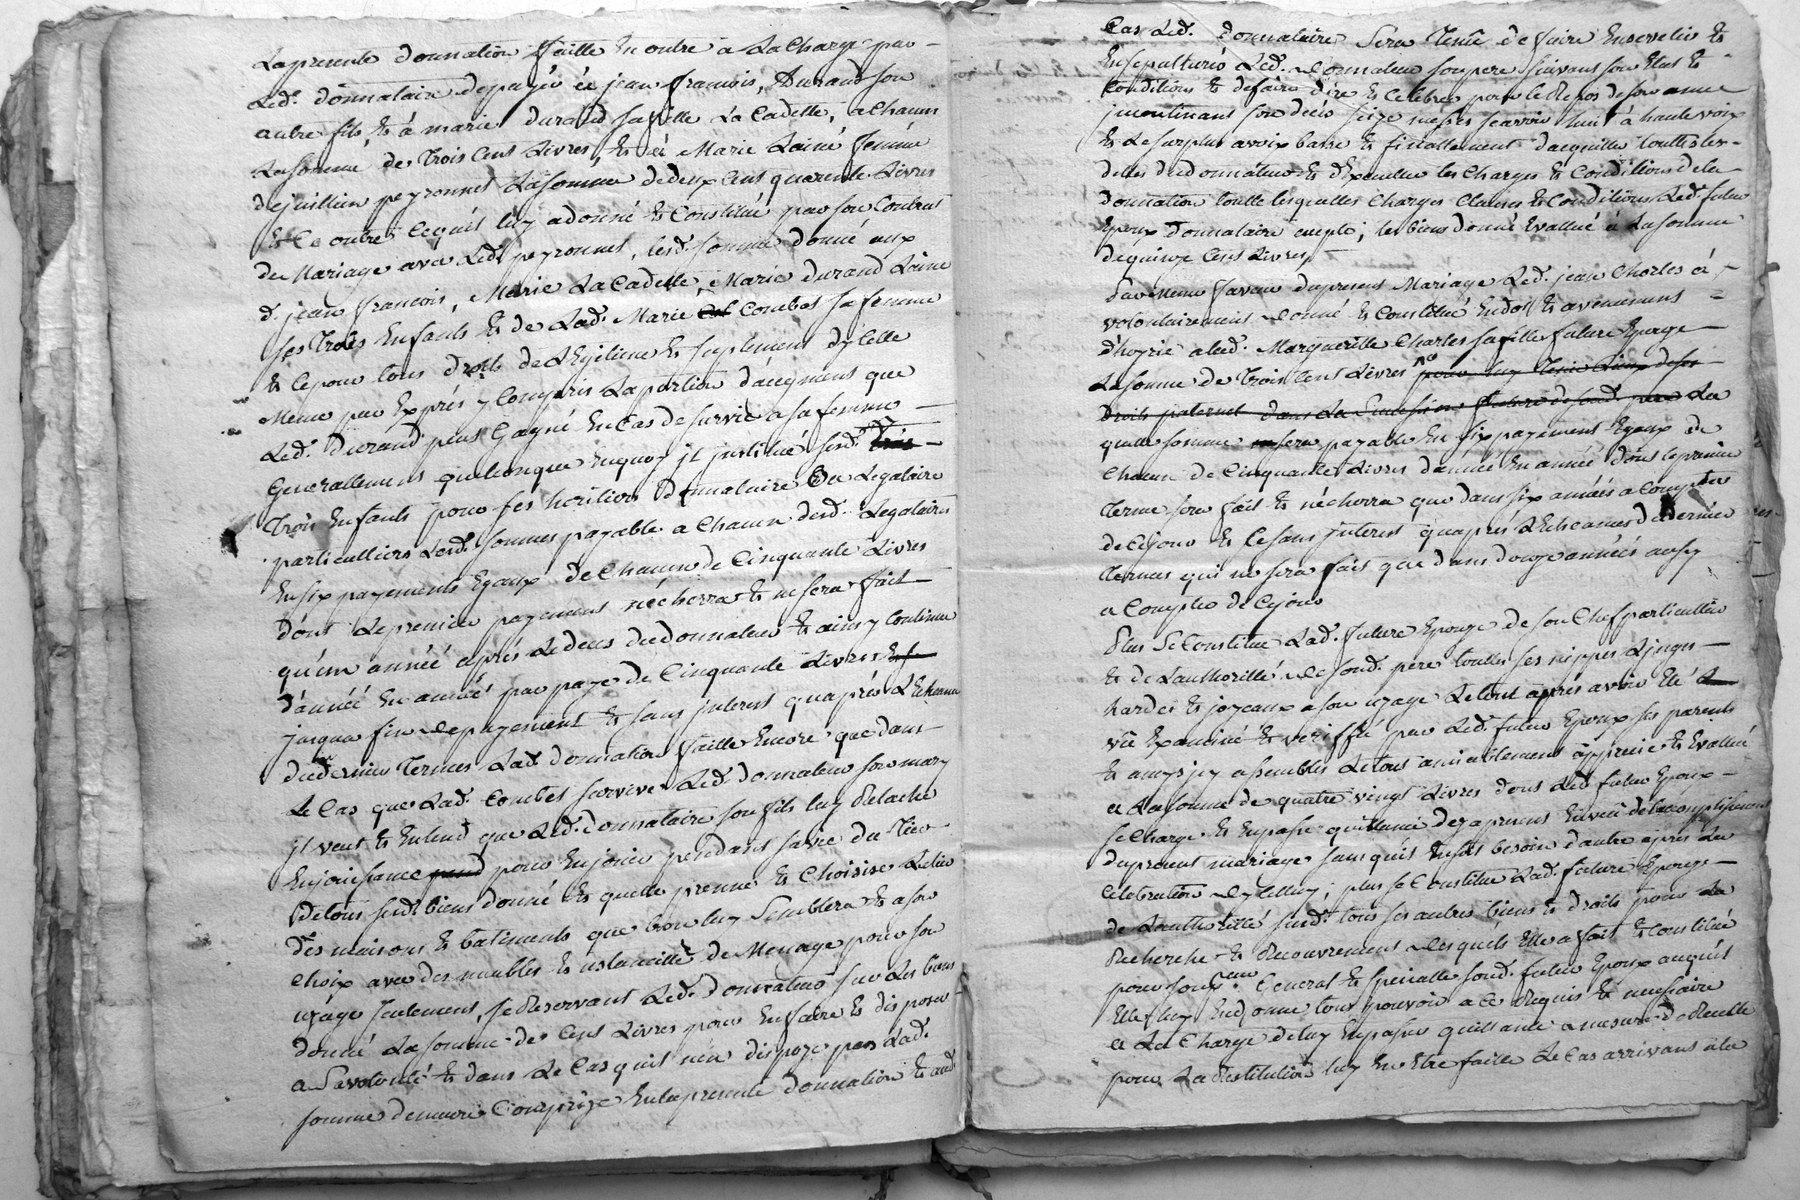 La presente donnation faitte en outre a la charge par
Led. donnataire de payer à jean francois Durand son
autre fils et à marie durand sa fille la Cadette, a chacun
la somme de trois cens livres, et à Marie Lainé femme
de juillien peyronnet la somme de deux cens quarente livres
et ce outre ce qu'il luy a donné et Constitué par son Contrat
de Mariage avec led. peyronnet, lesd. somme donné aux
d. jean francois, Marie la Cadette, Marie durand Laine
ses trois enfants et de lad. Marie Combes sa femme
et ce pour tous droits de legitime et suplement dicelle
Meme par exprés y compris la portion d'augment que
led. durand peut gagné en cas de survie a sa femme
generallement quelconque en quoy il institue sesd.
trois enfants pour ses heritiers donnataire ou legataire
particulliers lesd. sommes payable a chacun desd. legataires
en six payements egaux de chacun de Cinquante livres
dont le premier payement n'echerra et ne sera fait
qu'un année aprés le deces du donnateur et ainsy continuer
d'année en année par paye de Cinquante livres
jusqua fin de payement et sans interest qu'aprés l'echeance
du dernier terme lad. donnation faitte encore que dans
le cas que lad. Combes survive led. donnateur son mary
il veut et entend que led. donnataire son fils luy relache
en jouissance pour en jouir pendant sa vie du tiers
de tous sesd. biens donné et qu'elle prenne et choisise le tiers
des maisons et batiments que bon luy semblera et a son
choix avec des meubles et ustancille de Menage pour son
usage seulement, se reservant led. donnateur sur les biens
donné la somme de cens livres pour en faire et disposer
a sa volonté et dans le cas quil n'en dispoze pas lad.
somme demeure comprize en la presente donnation et aud.
cas led. donnataire sera tenu de faire ensevelir et
ensepulturer led. donnateur son pere suivant son etat et
conditions et de faire dire et celebrer pour le repos de son ame
incontinant son deces seize messes scavoir huit à haute voix
et le surplus a voix basse et finallement dacquitter touttes les
dettes du donnateur et dexecuter les charges et conditions de la
donnation toutte lesquelles charges clauses et conditions led. futur
epoux donnataire accepte; les biens donné evallué à la somme
de quinze cens livres
En meme faveur du present Mariage led. jean Charles à
volontairement donné et constitué en dot et avencement
d'hoyrie a lad. Margueritte Charles sa fille future epouze
la somme de trois cens livres pour luy tenir lieu de ses
droits paternel dans la succession future desond. pere la
quelle somme sera payable en six payement egaux de
chacun de cinquante livres d'année en année dont le premier
terme sera fait et n'echerra que dans six années a compter
de ce jour et ce sans interest qu'aprés l'echeances du dernier
termes qui ne sera fait que dans douze années aussy
a compter de ce jour
Plus se constitue lad. future epouze de son chef particullier
et de l'authoritté de sond. pere touttes ses nippes linges
hardes et joyeaux a son uzage le tout aprés avoir eté
vû examiné et veriffié par led. futur epoux ses parents
et amys icy assemblés le tout amiablement apprecié et evallué
a la somme de quatre vingt livres dont led. futur epoux
se charge et en passe quittance dez a present en vue de l'accomplissement
du present mariage sans qu'il en soit besoin d'autre aprés la
celebration dycelluy; plus se constitue lad. future epouze
de l'authoritté susd. tous ses autres biens et droits pour la
recherche et recouvrement desquels elle a fait et constitué
pour son procureur general et specialle sond. futur epoux auquel
elle luy en donne tout pouvoir a ce requis et necessaire
a la charge de luy en passer quittance a mesure de recette
pour la restitution luy en etre faitte le cas arrivant à la